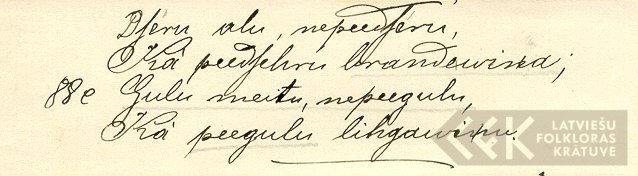 Dseru alu, nepeedseru,
Kâ peedsehru brandewina;
88e Gulu meitu, nepeegulu,
Kâ peegulu lihgawinu.
LATVIEŠU
FOLKLORAS
KRĀTUVE